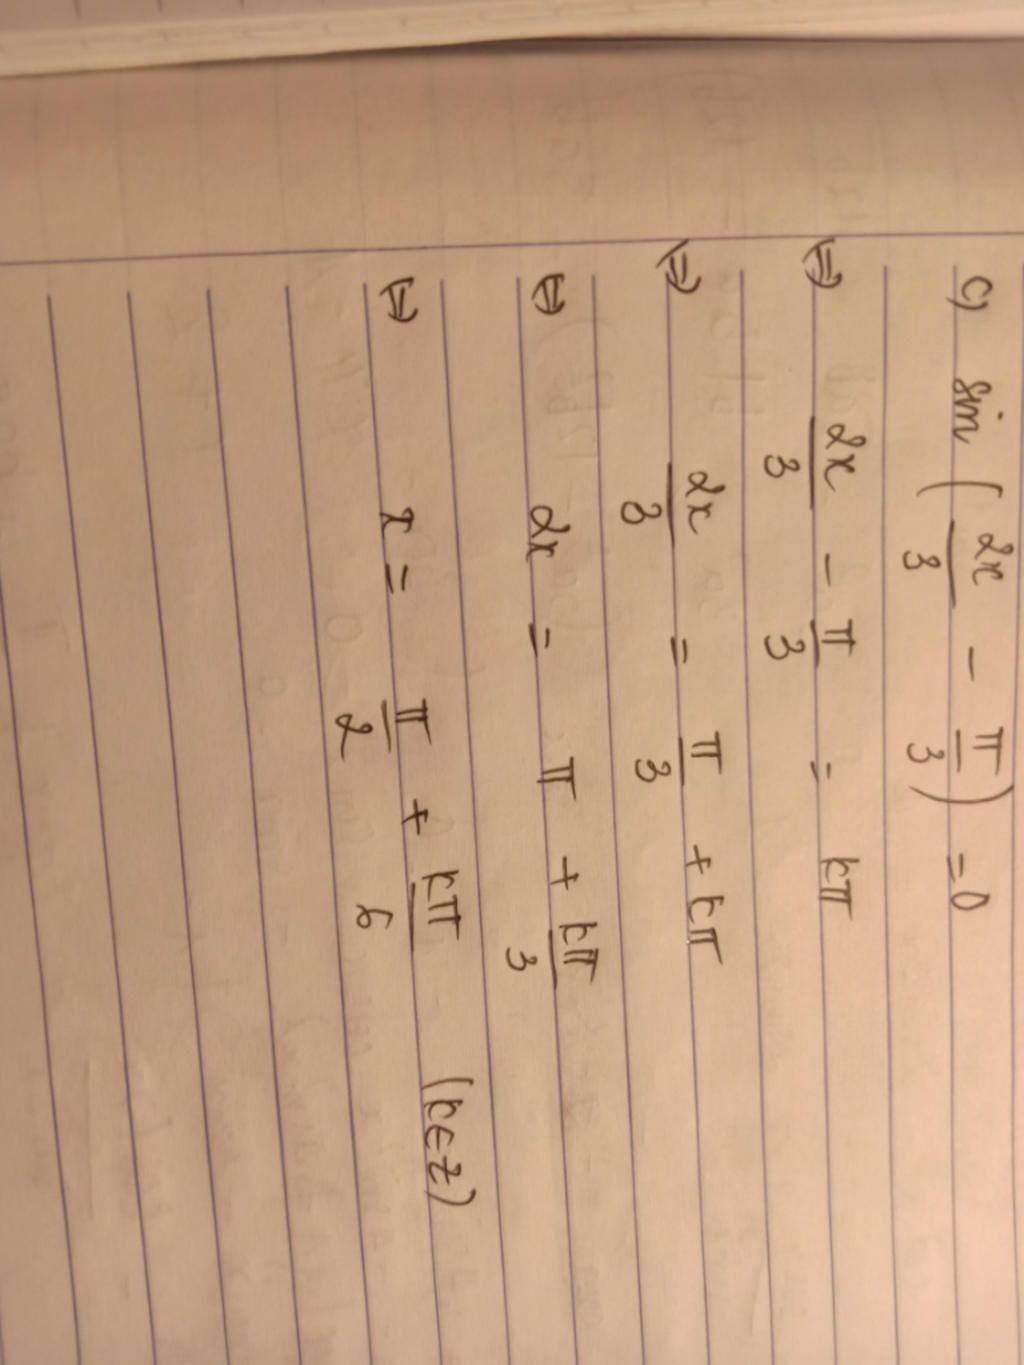 c) sin (2x/3 - π/3) = 0
⇔ 2x/3 - π/3 = kπ
⇔ 2x/3 = π/3 + kπ
⇔ 2x = π + kπ/3
⇔ x = π/2 + kπ/6 (k∈Z)